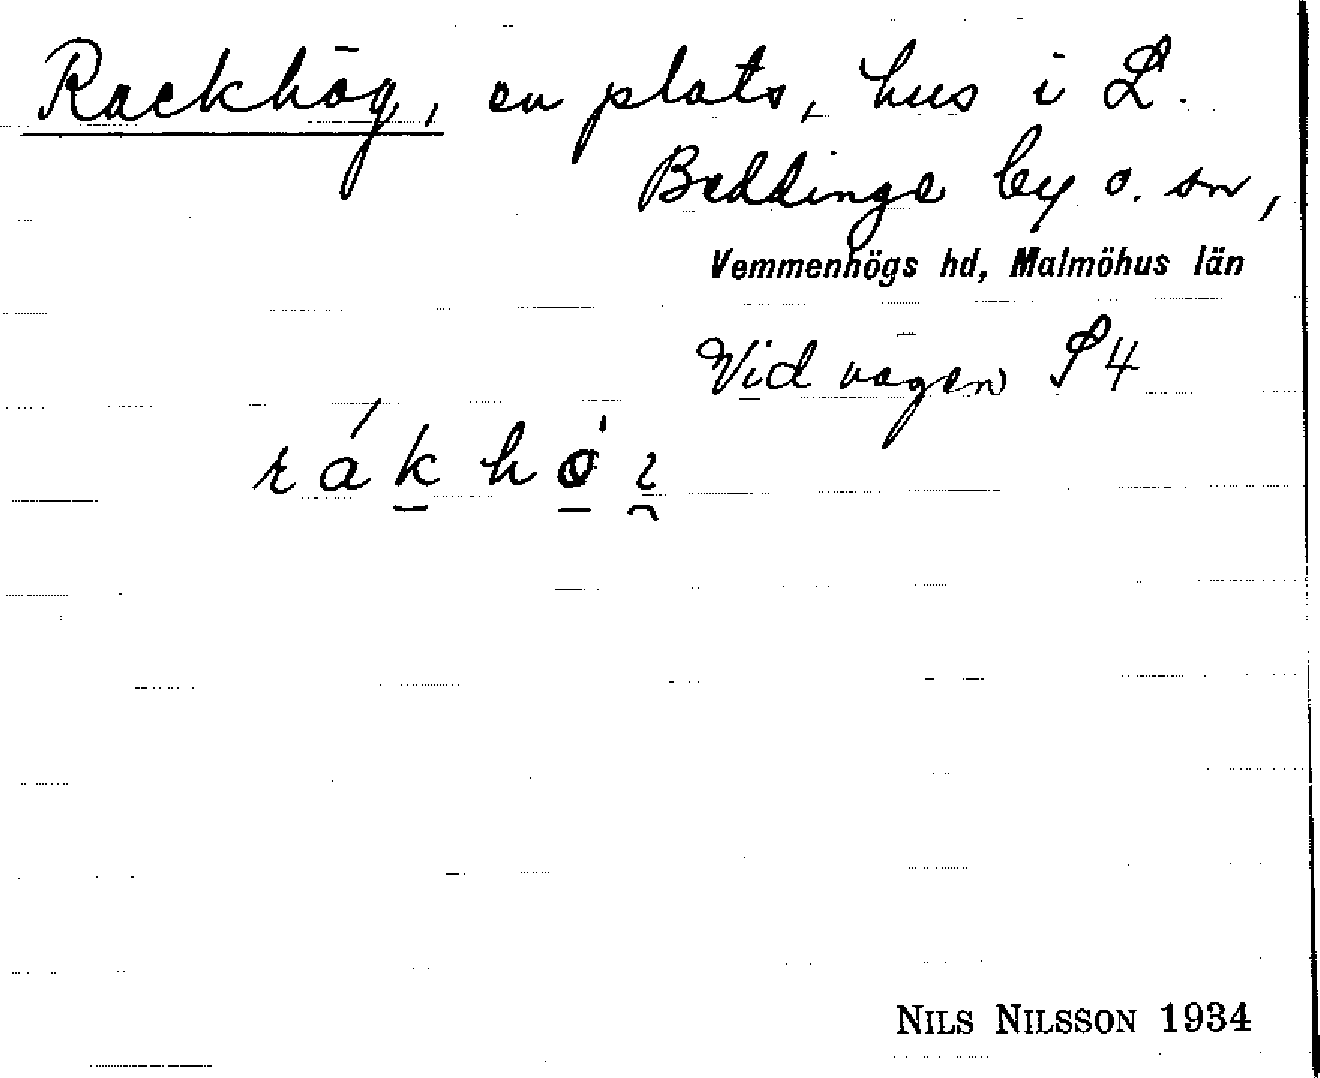 Rackhög, en plats, hus i L.
Beddinge by o. sn,
Vemmenhögs hd, Malmöhus län
Vid vägen S4
rákhǿi
NILS NILSSON 1934